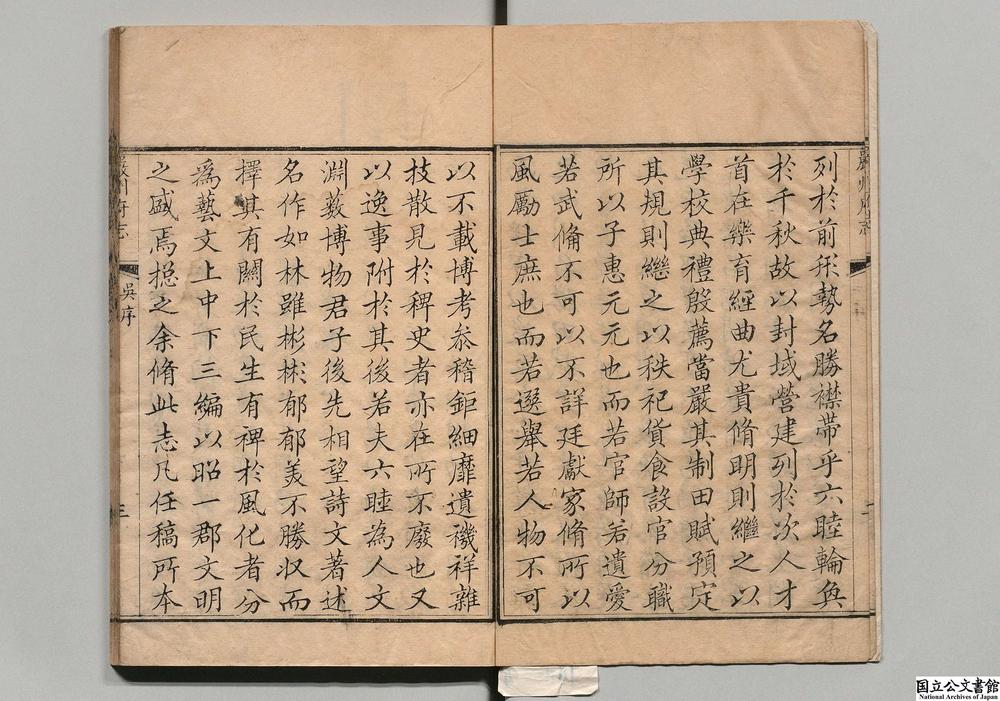 列於前形勢名勝襟帶乎六睦輪奐
於千秋故以封域營建列於次人才
首在樂育經曲尤貴脩明則繼之以
學校典禮殷薦當嚴其制田賦預定
其規則繼之以秩祀貨食設官分職
所以子惠元元也而若官師若遺愛
若武俻不可以不詳廷獻家脩所以
風勵士庶也而若選舉若人物不可
以不載博考叅稽鉅細靡遺禨祥雜
技散見於稗史者亦在所不廢也又
以逸事附於其後若夫六睦為人文
淵藪博物君子後先相望詩文著述
名作如林雖彬彬郁郁美不勝収而
擇其有關於民生有裨於風化者分
為藝文上中下三編以昭一郡文明
之盛焉揔之余脩此志凡任稿所本
嚴州府志
吳序
三
国立公文書館
National Archives of Japan